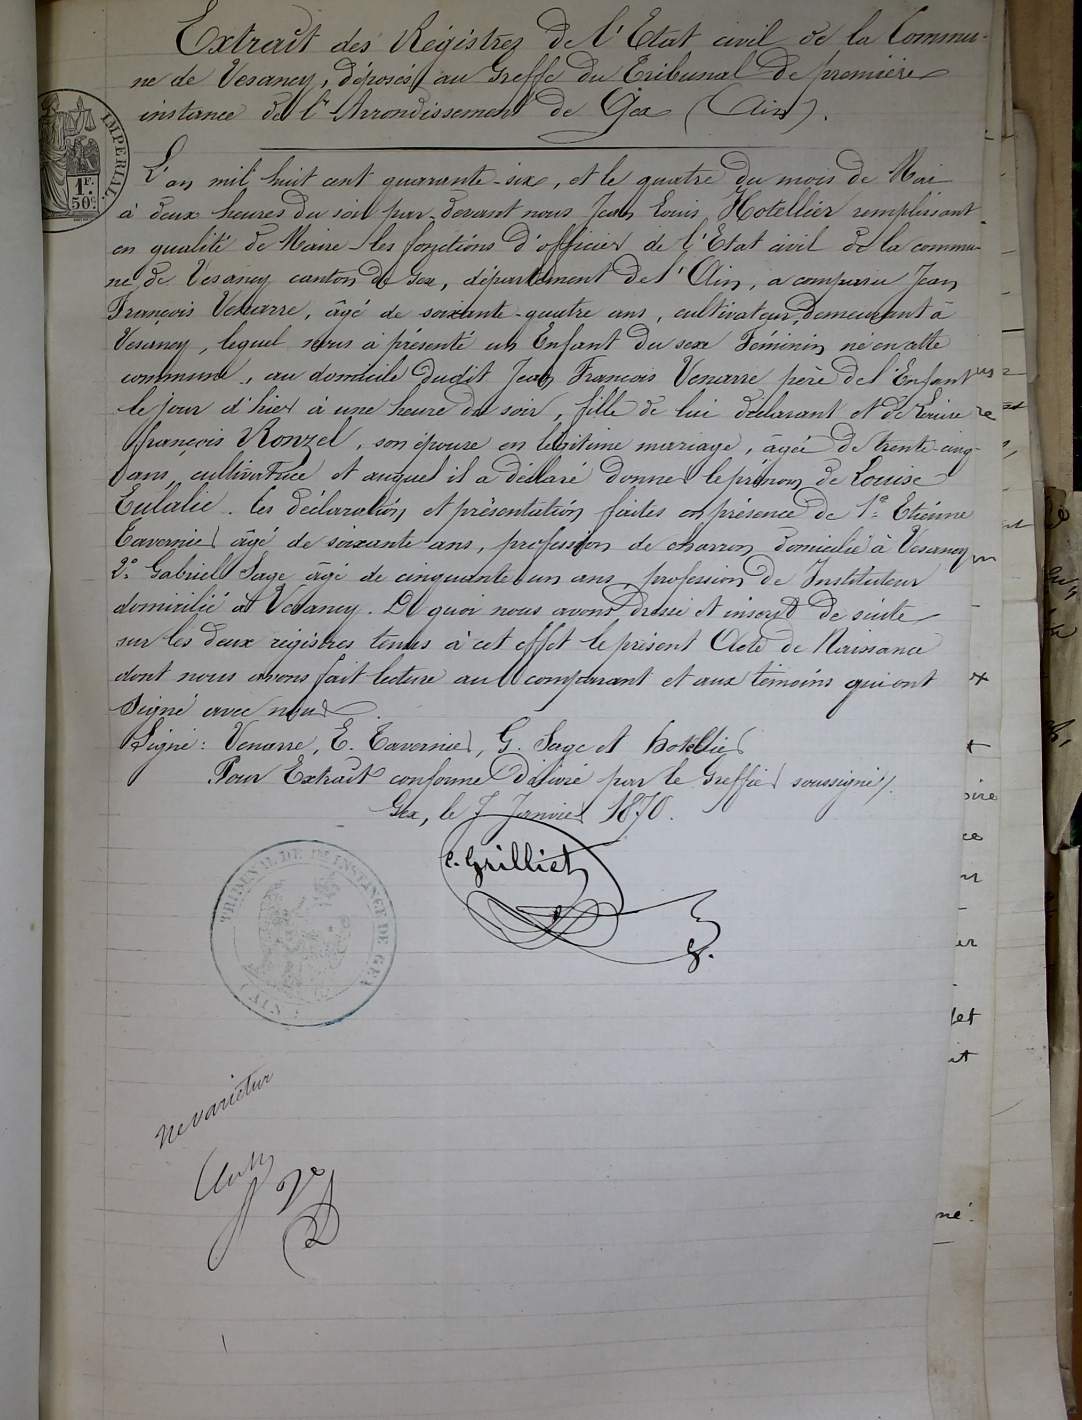 Extrait des Régistres de l'Etat civil de la Commu-
ne de Vesancy, déposés au Greffe du Tribunal de première
instance de l'Arrondissement de Gex (Ain).
IMPERIAL.
1F.
50c.
L'an mil huit cent quarante-six, et le quatre du mois de Mai
à deux heures du soir par-devant nous Jean Louis Hotellier remplissant
en qualité de Maire les fonctions d'officier de l'Etat civil de la commu-
ne de Vesancy canton de Gex, département de l'Ain, a comparu Jean
François Venarre, âgé de soixante-quatre ans, cultivateur, demeurant à
Vesancy, lequel nous a présenté un Enfant du sexe Féminin né en cette
commune, au domicile dudit Jean François Venarre père de l'Enfant
le jour d'hier à une heure du soir, fille de lui déclarant et de Louise
françois Ronzel, son épouse en légitime mariage, âgée de trente-cinq
ans, cultivatrice et auquel il a déclaré donner le prénom de Louise
Eulalie. Ces déclaration et présentation faites en présence de 1° Etienne
Tavernier âgé de soixante ans, profession de charron domicilié à Vesancy
2° Gabriel Sage âgé de cinquante un ans profession de Instituteur
domicilié à Vesancy. De quoi nous avons dressé et inscrit de suite
sur les deux régistres tenus à cet effet le présent Acte de Naissance
dont nous avons fait lecture au comparant et aux témoins qui ont
signé avec nous
Signé: Venarre, E. Tavernier, G. Sage et hotellier
Pour Extrait conforme Délivré par le Greffier soussigné.
Gex, le 7 Janvier 1870.
C. Grilliet
TRIBUNAL DE 1RE INSTANCE DE GEX
(AIN)
Ne varietur